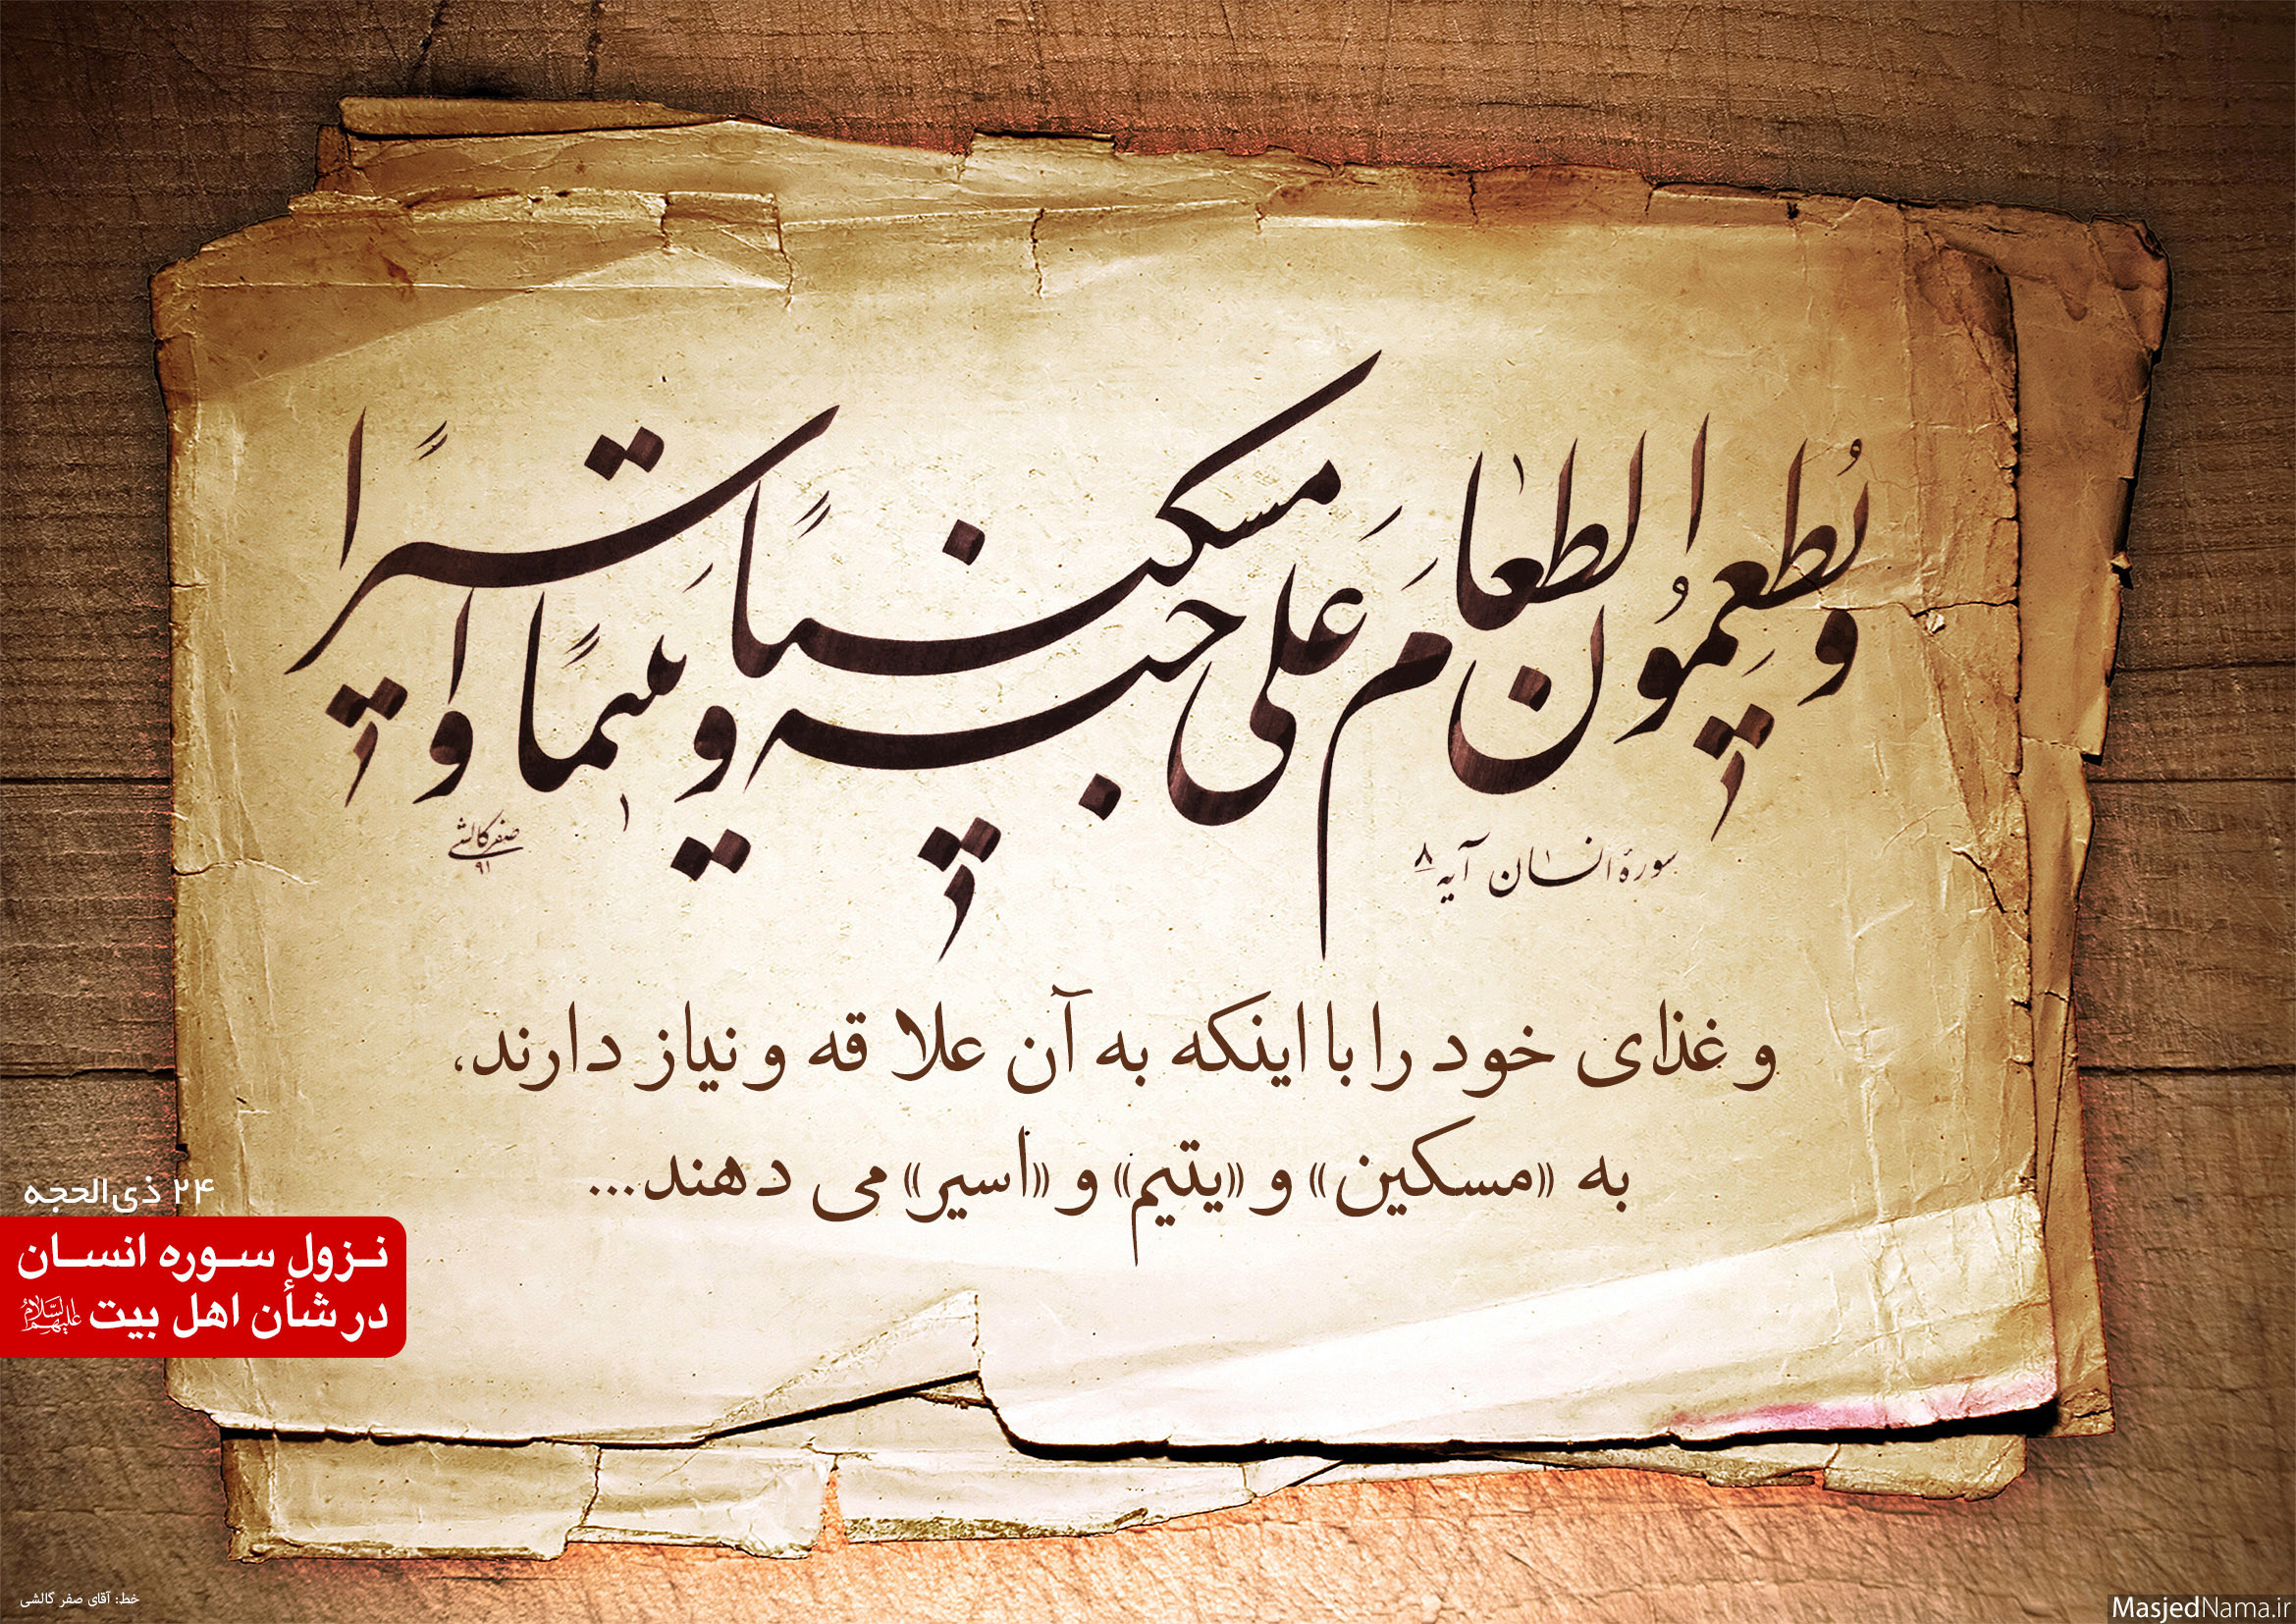 وَيُطْعِمُونَ الطَّعَامَ عَلَى حُبِّهِ مِسْكِينًا وَيَتِيمًا وَأَسِيرًا
سورهٔ انسان آیه ۸
صفر گالشی
۹۱
و غذای خود را با اینکه به آن علاقه و نیاز دارند،
به «مسکین» و «یتیم» و «اسیر» می دهند...
۲۴ ذی‌الحجه
نـزول سـوره انسـان
در شأن اهل بیت علیهم السلام
خط: آقای صفر گالشی
MasjedNama.ir